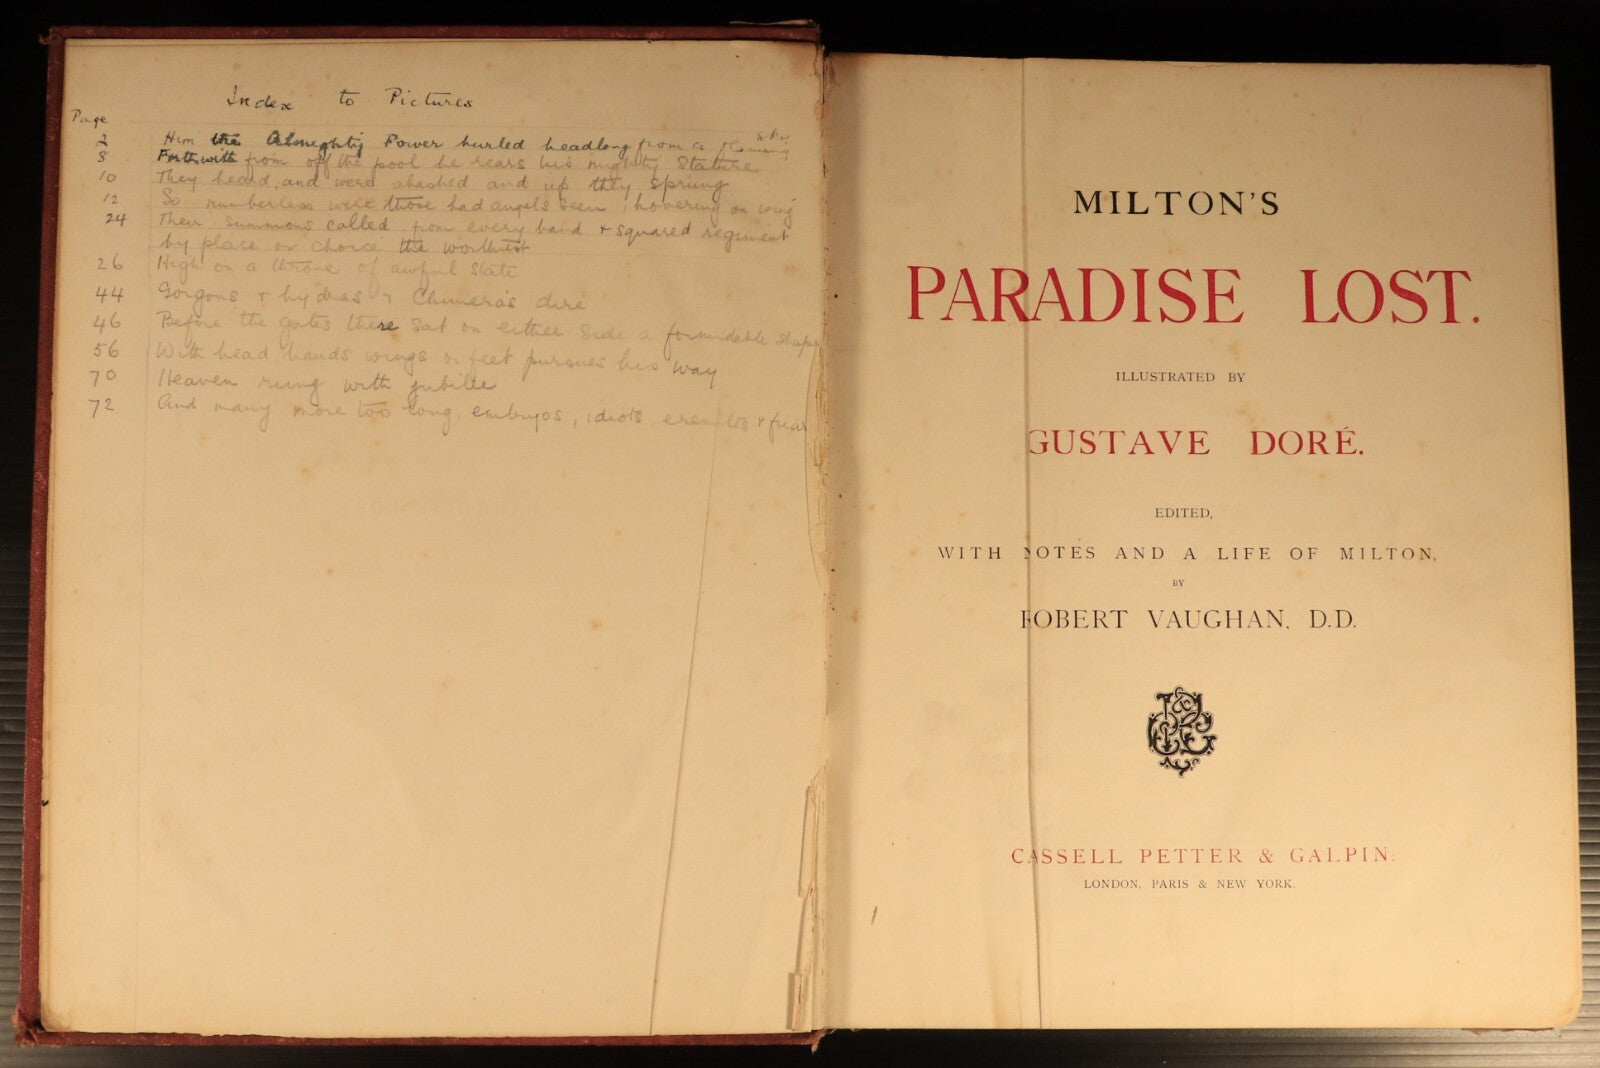 Index to Pictures
Page
2 Him the Almighty Power hurled headlong from a flaming sky
8 Forthwith from off the pool he rears his mighty stature
10 They heard, and were abashed and up they sprung
12 So numberless were those bad angels seen, hovering on wing
24 Their summons called from every band & squared regiment
by place or choice the worthiest
26 High on a throne of awful state
44 Gorgons & hydras & Chimera's dire
46 Before the gates there sat on either side a formidable shape
56 With head hands wings or feet pursues his way
70 Heaven rung with jubilee
72 And many more too long, embryos, idiots, eremites & friar
MILTON'S
PARADISE LOST.
ILLUSTRATED BY
GUSTAVE DORÉ.
EDITED,
WITH NOTES AND A LIFE OF MILTON,
BY
ROBERT VAUGHAN, D.D.
CASSELL PETTER & GALPIN:
LONDON, PARIS & NEW YORK.